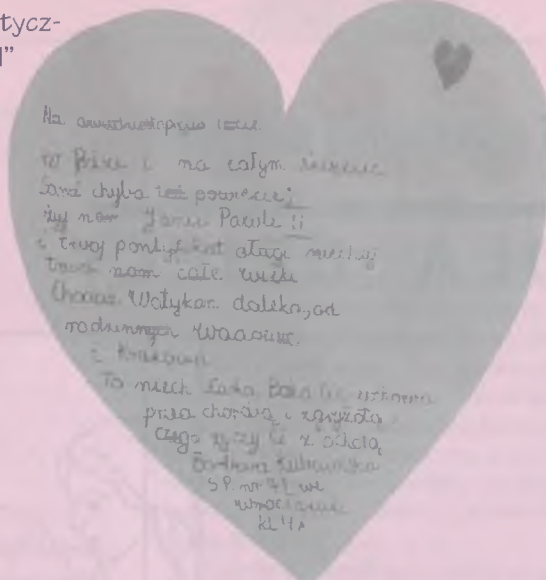 tycz-
"
Na
w Polsce i na całym świecie
Sami chyba też powiecie,
żyj nam Janie Pawle II
i twój pontyfikat długi niechaj
trwa nam całe wieki
Chociaż Watykan daleko, od
rodzinnych Wadowic
i Krakowa
To niech Łaska Boża Cię uchowa
przed chorobą i zgryzotą
czego życzy Ci z ochotą
Barbara
S.P. nr 71 we
Wrocławiu
kl.